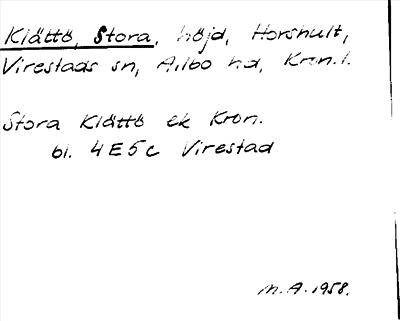 Klättö, Stora, höjd, Horshult,
Virestads sn, Allbo hd, Kron. l.
Stora Klättö ek Kron.
bl. 4E5c Virestad
M.A. 1958.